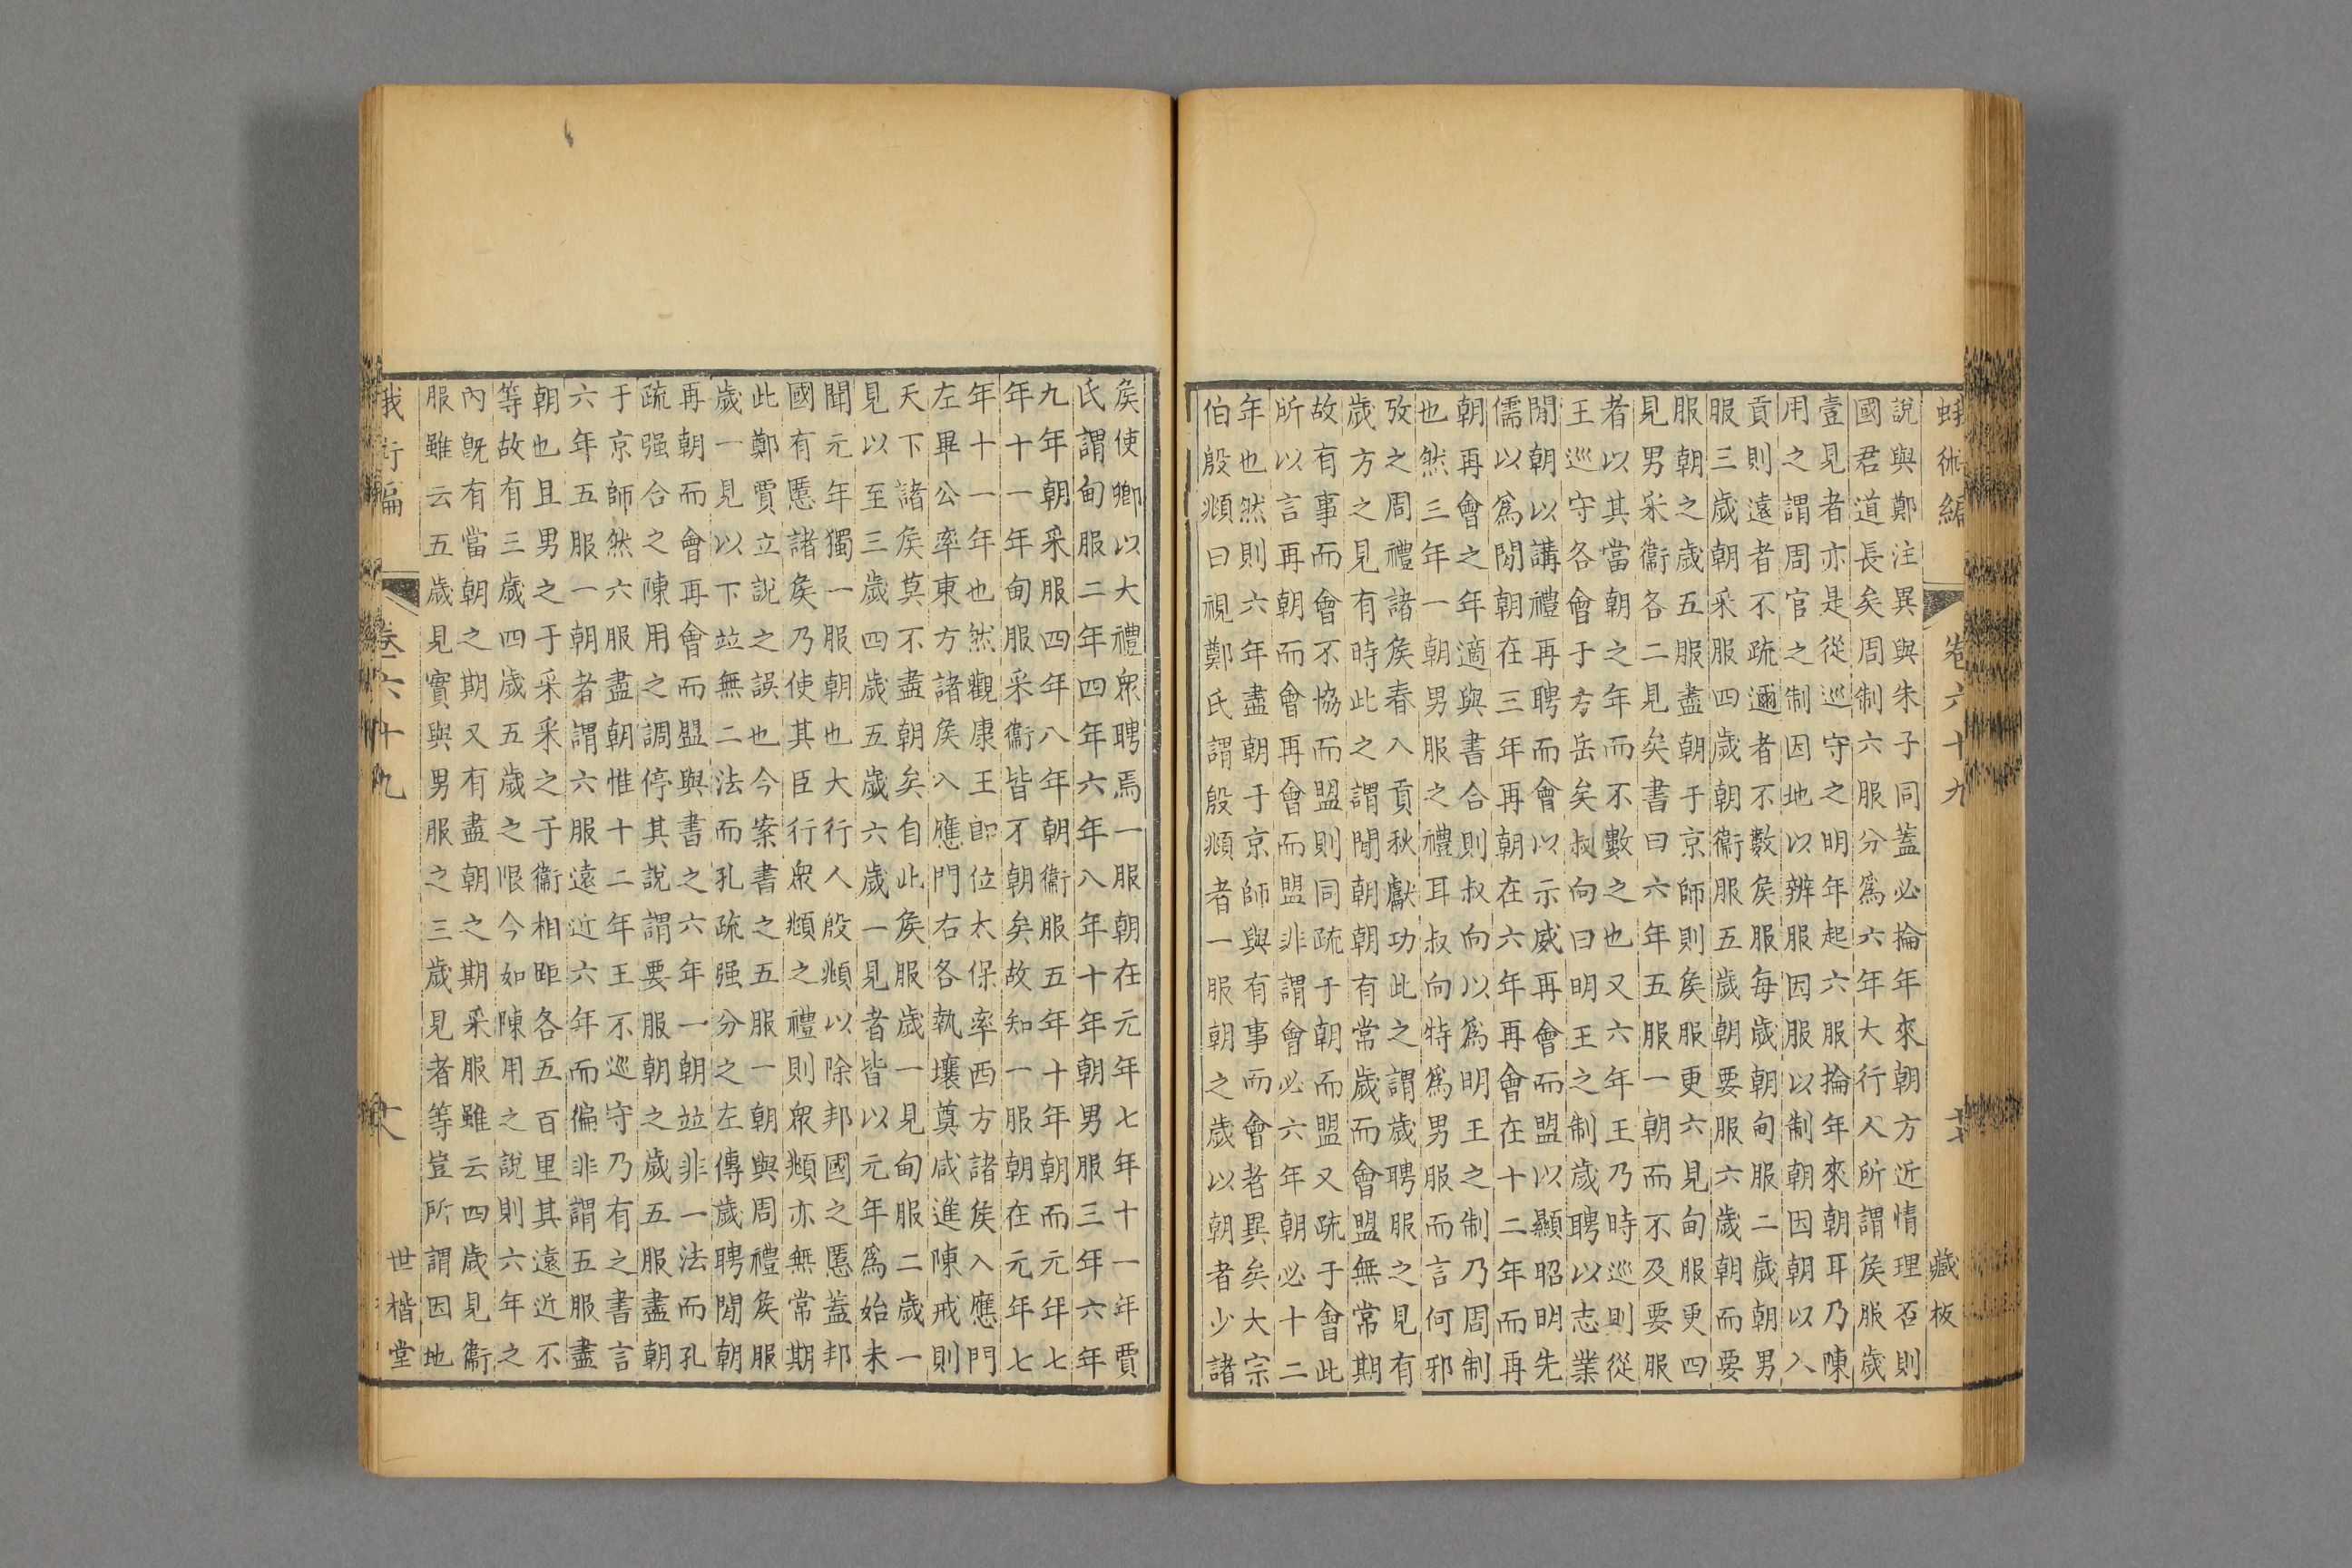 蛾術編 卷六十九 藏板
說與鄭注異與朱子同蓋必掄年來朝方近情理否則
國君道長矣周制六服分爲六年大行人所謂矦服歲
壹見者亦是從巡守之明年起六服掄年來朝耳乃陳
用之謂周官之制因地以辨服因服以制朝因朝以入
貢則遠者不疏邇者不數矦服每歲朝甸服二歲朝男
服三歲朝采服四歲朝衞服五歲朝要服六歲朝而要
服朝之歲五服盡朝于京師則矦服更六見甸服更四
見男采衞各二見矣書曰六年五服一朝而不及要服
者以其當朝之年而不數之也又六年王乃時巡則從
王巡守各會于方岳矣叔向曰明王之制歲聘以志業
閒朝以講禮再聘而會以示威再會而盟以顯昭明先
儒以爲閒朝在三年再朝在六年再會在十二年而再
朝再會之年適與書合則叔向以爲明王之制乃周制
也然三年一朝男服之禮耳叔向特爲男服而言何邪
攷之周禮諸矦春入貢秋獻功此之謂歲聘服之見有
歲方之見有時此之謂閒朝朝有常歲而會盟無常期
故有事而會不協而盟則同疏于朝而盟又疏于會此
所以言再朝而會再會而盟非謂會必六年朝必十二
年也然則六年盡朝于京師與有事而會者異矣大宗
伯殷覜曰視鄭氏謂殷覜者一服朝之歲以朝者少諸
矦使卿以大禮衆聘焉一服朝在元年七年十一年賈
氏謂甸服二年四年六年八年十年朝男服三年六年
九年朝采服四年八年朝衞服五年十年朝而元年七
年十一年甸服采衞皆不朝矣故知一服朝在元年七
年十一年也然觀康王卽位太保率西方諸矦入應門
左畢公率東方諸矦入應門右各執壤奠咸進陳戒則
天下諸矦莫不盡朝矣自此矦服歲一見甸服二歲一
見以至三歲四歲五歲六歲一見者皆以元年爲始未
聞元年獨一服朝也大行人殷覜以除邦國之慝蓋邦
國有慝諸矦乃使其臣行衆覜之禮則衆覜亦無常期
此鄭賈立說之誤也今案書之五服一朝與周禮矦服
歲一見以下竝無二法而孔疏强分之左傳歲聘閒朝
再朝而會再會而盟與書之六年一朝竝非一法而孔
疏强合之陳用之調停其說謂要服朝之歲五服盡朝
于京師然六服盡朝惟十二年王不巡守乃有之書言
六年五服一朝者謂六服遠近六年而徧非謂五服盡
朝也且男之于采采之于衞相距各五百里其遠近不
等故有三歲四歲五歲之限今如陳用之說則六年之
內旣有當朝之期又有盡朝之期采服雖云四歲見衞
服雖云五歲見實與男服之三歲見者等豈所謂因地
蛾術編 卷六十九 世楷堂